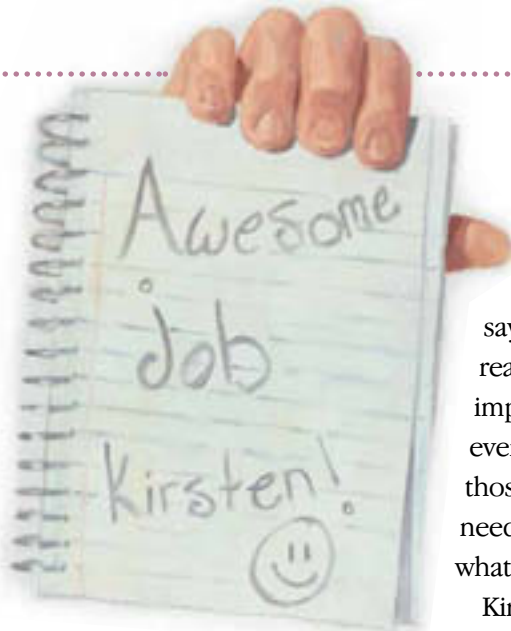 Awesome
job
Kirsten!
say
rea
imp
ever
thos
need
what
Kir